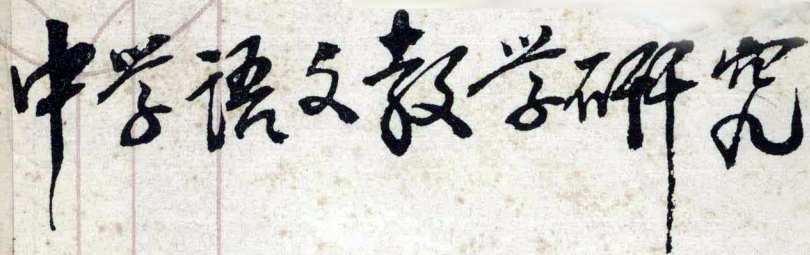 中学語文教学研究